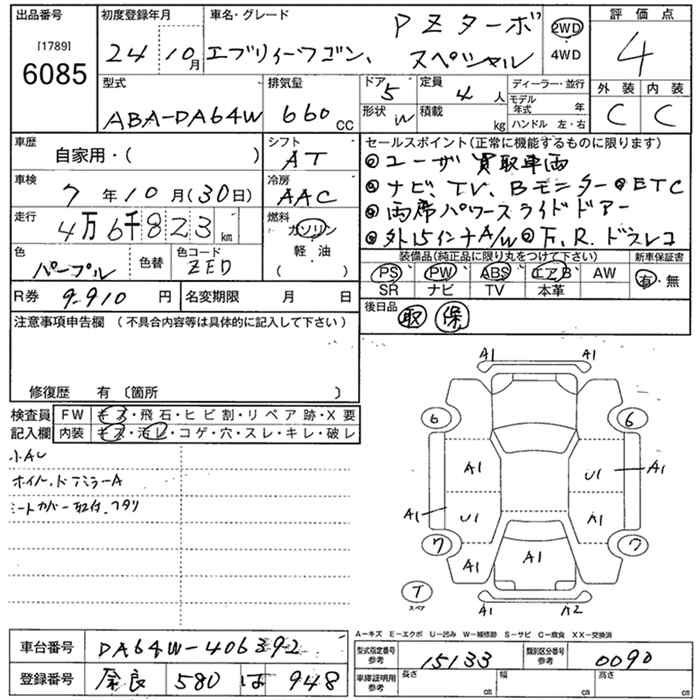 出品番号 初度登録年月 車名・グレード PZターボ 2WD 評価点
[1789]
6085 24 10月 エブリィーワゴン、 スペシャル 4WD 4
型式 排気量 ドア 5 定員 4 人 ディーラー・並行 外装 内装
ABA-DA64W 660 CC 形状 in 積載 kg モデル年式 年 C C
ハンドル 左・右
車歴 自家用・( ) シフト AT セールスポイント(正常に機能するものに限ります)
◎ユーザー買取車両
車検 7年10月(30日) 冷房 AAC ◎ナビ、TV、Bモニター◎ETC
走行 4万6千823km 燃料 ガソリン ◎両席パワースライドドアー
軽油 ◎外15インチA/W◎F.R.ドラレコ
( )
色 パープル 色替 色コード ZED 装備品(純正品に限り丸をつけて下さい) 新車保証書
PS PW ABS エアB AW 有・無
R券 9.910円 名変期限 月 日 SR ナビ TV 本革
注意事項申告欄 (不具合内容等は具体的に記入して下さい) 後日品 取 保
修復歴 有 〔箇所 〕
検査員 FW キズ・飛石・ヒビ割・リペア跡・X要
記入欄 内装 キズ・汚レ・コゲ・穴・スレ・キレ・破レ
小AU
ホイル.ドアミラーA
シートカバー取付.フタリ
A1 A1
6 6
A1 U1 A1
A1 U1 A1
7 7
A1 A1
T
スペア
A1 A2
A-キズ E-エクボ U-凹み W-補修跡 S-サビ C-腐食 XX-交換済
車台番号 DA64W-406392 型式指定番号 参考 15133 類別区分番号 参考 0090
登録番号 奈良 580 は 948 車庫証明用 参考 長さ cm 幅 cm 高さ cm